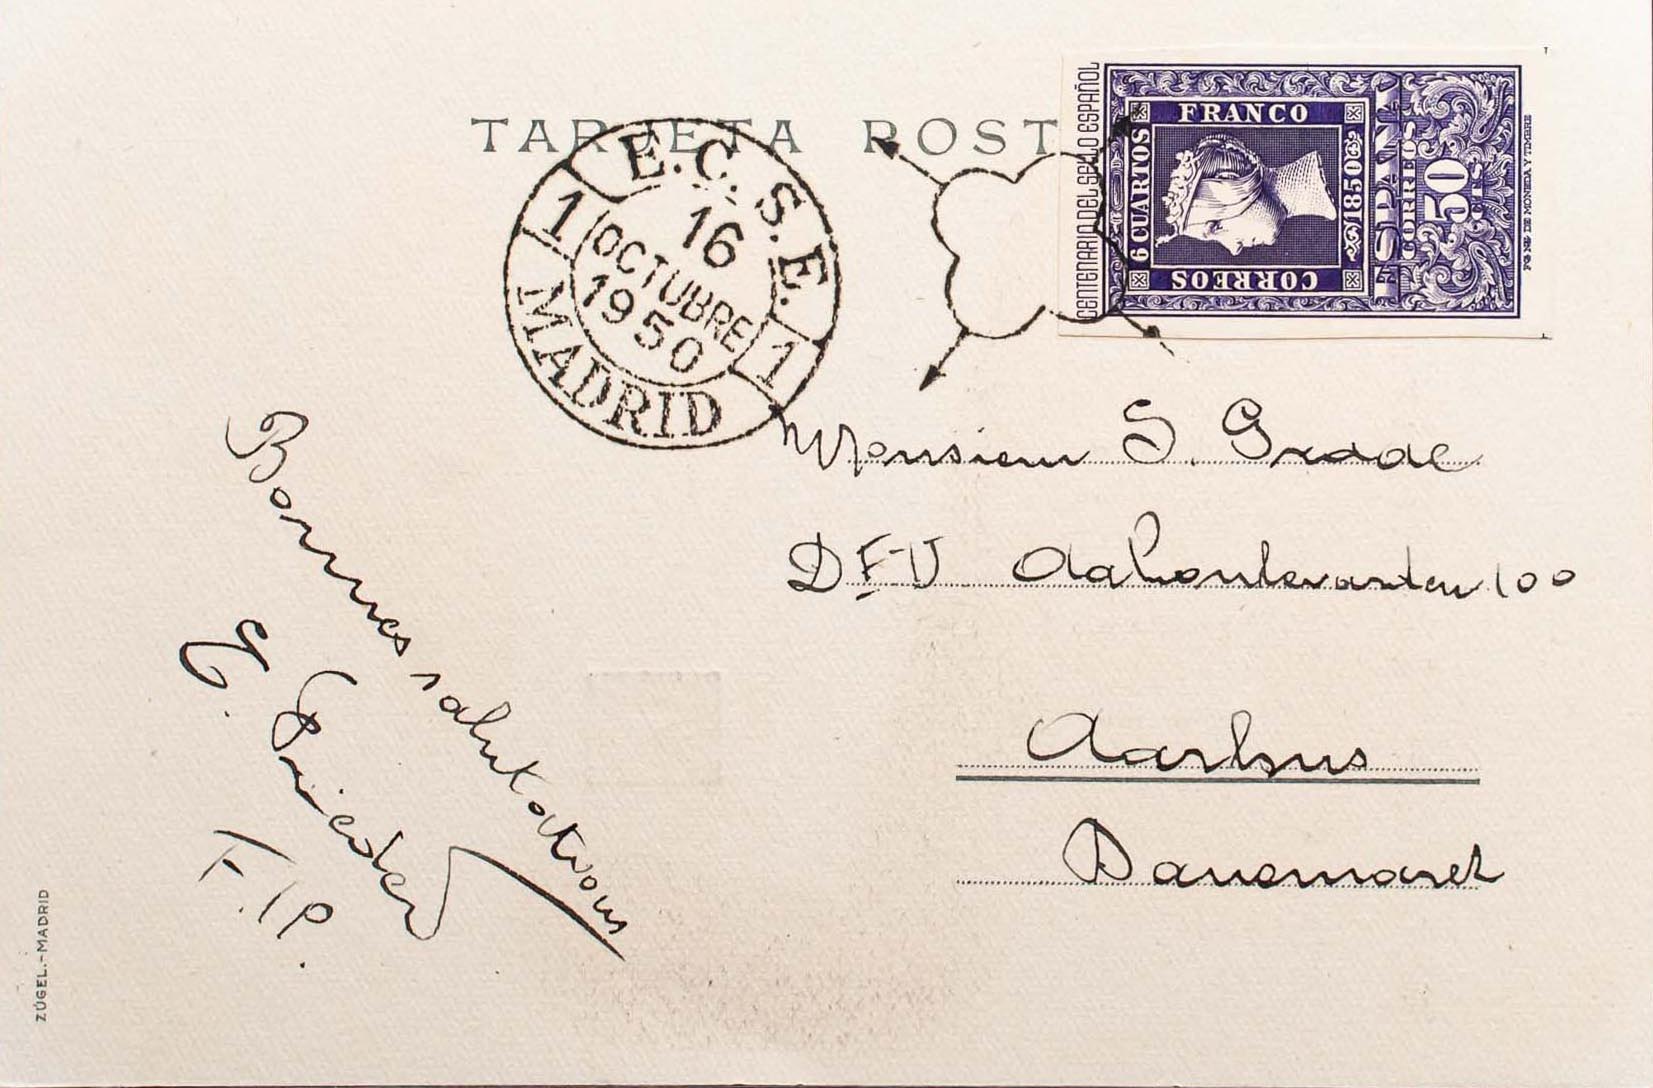 TARJETA POST
E.C.S.E.
1
16
OCTUBRE
1950
1
MADRID
CENTENARIO DEL SELLO ESPAÑOL
FRANCO
6 CUARTOS
1850
CORREOS
ESPAÑA
CORREOS
50
CTS
DE MONEDA Y TIMBRE
Monsieur S.
DFU Aaboulevarden 100
Aarhus
Danemarck
Bonnes salutations
E.
F.I.P.
ZÚGEL.-MADRID